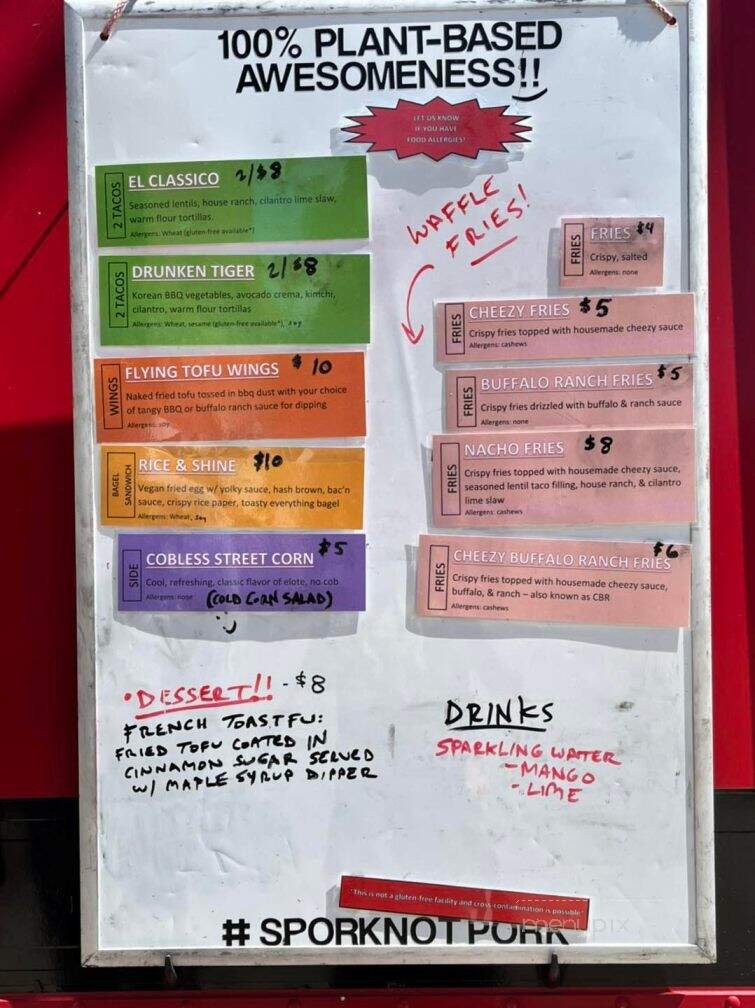 100% PLANT-BASED
AWESOMENESS!!
LET US KNOW
IF YOU HAVE
FOOD ALLERGIES!
2 TACOS
EL CLASSICO 2/$8
Seasoned lentils, house ranch, cilantro lime slaw,
warm flour tortillas.
Allergens: Wheat (gluten-free available*)
2 TACOS
DRUNKEN TIGER 2/$8
Korean BBQ vegetables, avocado crema, kimchi,
cilantro, warm flour tortillas
Allergens: Wheat, sesame (gluten-free available*), soy
WINGS
FLYING TOFU WINGS $10
Naked fried tofu tossed in bbq dust with your choice
of tangy BBQ or buffalo ranch sauce for dipping
Allergens: soy
BAGEL
SANDWICH
RICE & SHINE $10
Vegan fried egg w/ yolky sauce, hash brown, bac'n
sauce, crispy rice paper, toasty everything bagel
Allergens: Wheat, soy
SIDE
COBLESS STREET CORN $5
Cool, refreshing, classic flavor of elote, no cob
Allergens: none (COLD CORN SALAD)
WAFFLE
FRIES!
FRIES
FRIES $4
Crispy, salted
Allergens: none
FRIES
CHEEZY FRIES $5
Crispy fries topped with housemade cheezy sauce
Allergens: cashews
FRIES
BUFFALO RANCH FRIES $5
Crispy fries drizzled with buffalo & ranch sauce
Allergens: none
FRIES
NACHO FRIES $8
Crispy fries topped with housemade cheezy sauce,
seasoned lentil taco filling, house ranch, & cilantro
lime slaw
Allergens: cashews
FRIES
CHEEZY BUFFALO RANCH FRIES $6
Crispy fries topped with housemade cheezy sauce,
buffalo, & ranch – also known as CBR
Allergens: cashews
• DESSERT!! - $8
FRENCH TOASTFU:
FRIED TOFU COATED IN
CINNAMON SUGAR SERVED
W/ MAPLE SYRUP DIPPER
DRINKS
SPARKLING WATER
- MANGO
- LIME
*This is not a gluten-free facility and cross-contamination is possible*
# SPORKNOTPORK
menupix